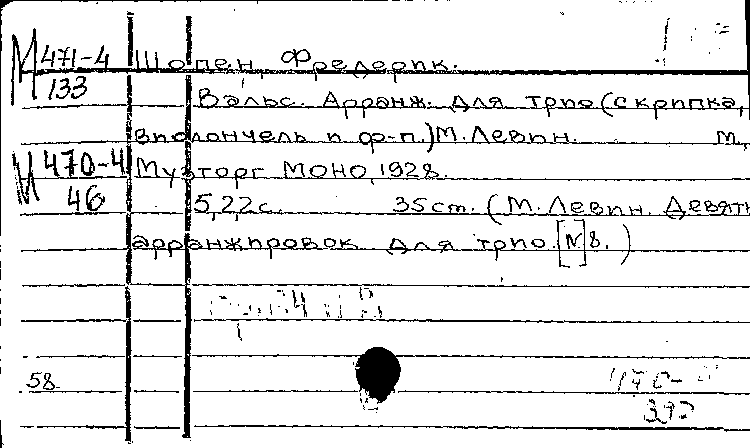 М 471-4 Шопен, Фредерик.
133
Вальс. Арранж. для трио (скрипка,
виолончель и ф-п.) М. Левин. М.,
М 470-4 Музторг МОНО, 1928.
46 5,22с. 35cm. (М. Левин. Девять
арранжировок для трио. [№]8.)
58
392